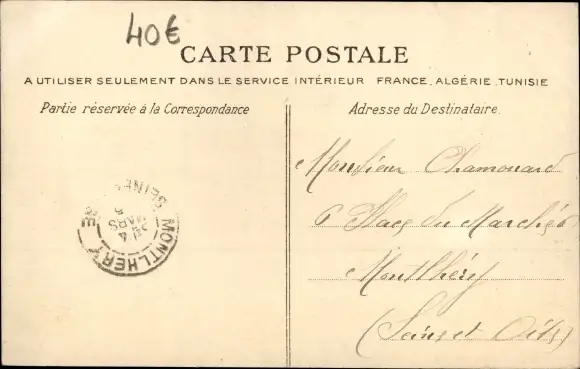 40€
CARTE POSTALE
A UTILISER SEULEMENT DANS LE SERVICE INTÉRIEUR FRANCE, ALGÉRIE, TUNISIE
Partie réservée à la Correspondance
Adresse du Destinataire.
Monsieur Chamouard
6 Place du Marché
Montlhéry
(Seine et Oise)
MONTLHERY
SEINE
MARS